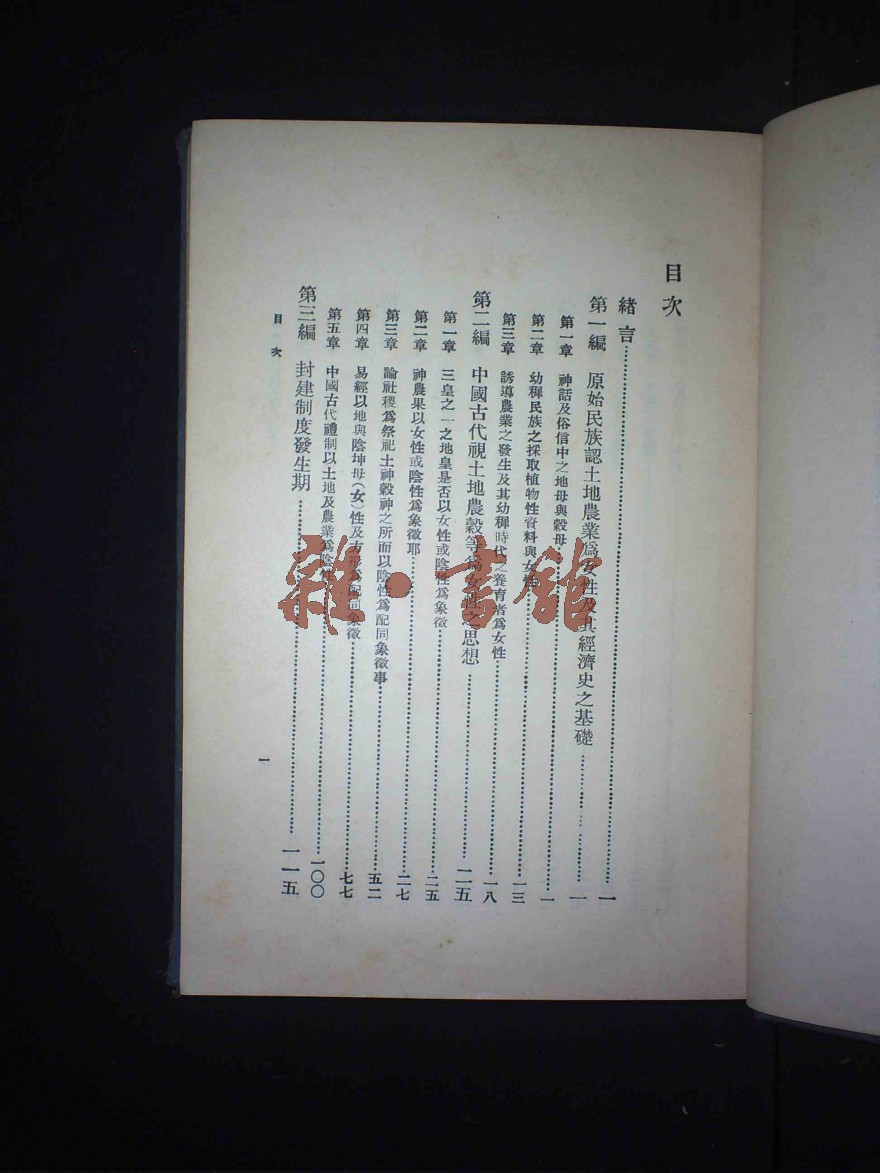 目次
緒言……一
第一編 原始民族認土地農業爲女性及其經濟史之基礎……一
第一章 神話及俗信中之地母與穀母……一
第二章 幼稚民族之採取植物性資料與女性……一三
第三章 誘導農業之發生及其幼稚時代之養育者爲女性……一八
第二編 中國古代視土地農穀等爲女性之思想……二五
第一章 三皇之一之地皇是否以女性或陰性爲象徵……二五
第二章 神農果以女性或陰性爲象徵耶……二七
第三章 論社稷爲祭祀土神穀神之所而以陰性爲配同象徵事……五二
第四章 易經以地與陰坤母(女)性及方形爲配同象徵……七七
第五章 中國古代禮制以土地及農業爲陰性……一〇〇
第三編 封建制度發生期……一一五
目次
一
雜·書館